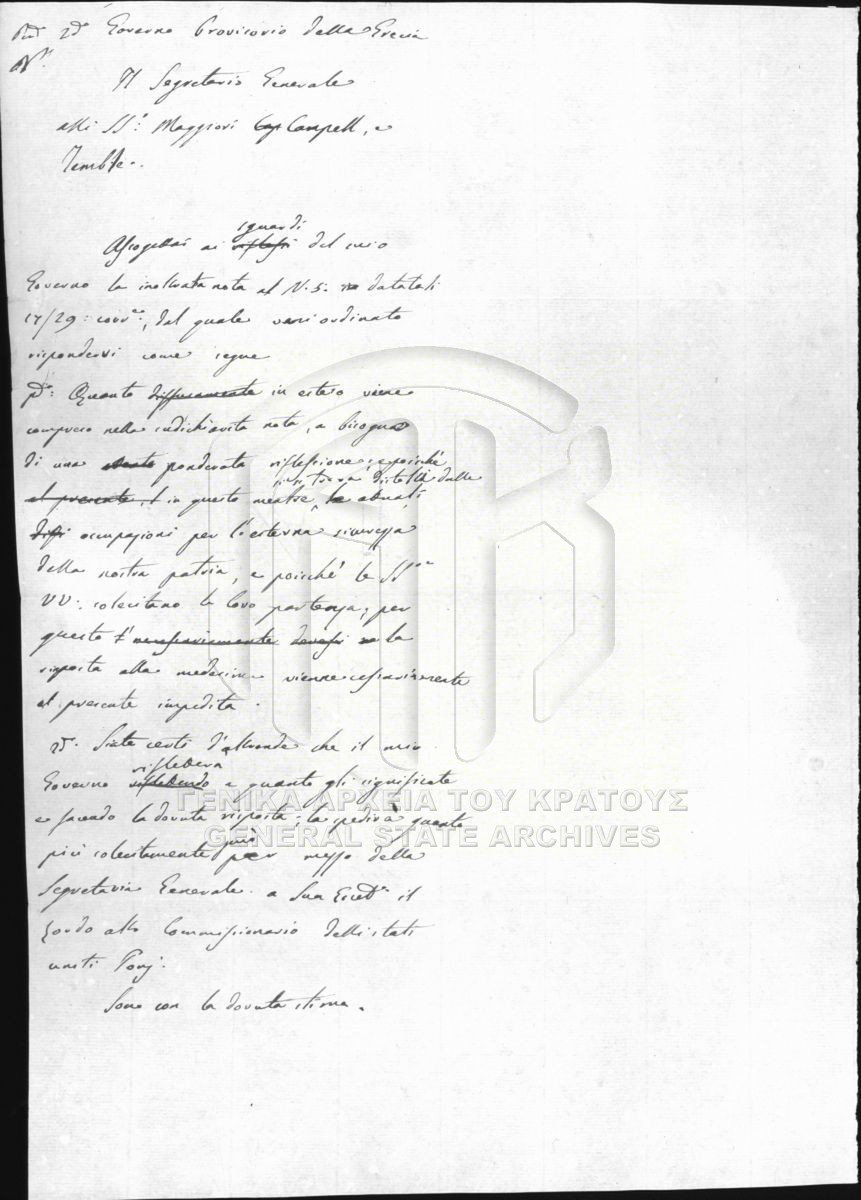 2d Governo Provisorio della Grecia
N.
Il Segretario Generale
alli SS.ri Maggiori Cap Campell, e
Temble.
Assogettai ai riflessi sguardi del mio
Governo la inoltrata nota al N. 5. datata li
17/29: corr.te, dal quale venni ordinato
rispondervi come segue
p.o: Quanto diffusamente in esteso viene
compreso nella sudichiarita nota, a bisogno
di una ponderata riflessione; e poiché
al presente, in questo mentre, si trova distolti dalle attuali
occupazioni per l'esterna sicurezza
della nostra patria, e poiché le SS.rie
VV: solecitano la loro partenza, per
questo necessariamente la
risposta alla medesima vienne necessariamente
al presente impedita.
2d. Siate certi d'altronde che il mio
Governo riflettendo rifletterà a quanto gli significate
e facendo la dovuta risposta; la pedirà quanto
più solecitamente può per mezzo della
Segretaria Generale a Sua Eccel.za il
Lordo alto Commissionario delli stati
uniti Jonj.
Sono con la dovuta stima.
ΓΕΝΙΚΑ ΑΡΧΕΙΑ ΤΟΥ ΚΡΑΤΟΥΣ
GENERAL STATE ARCHIVES